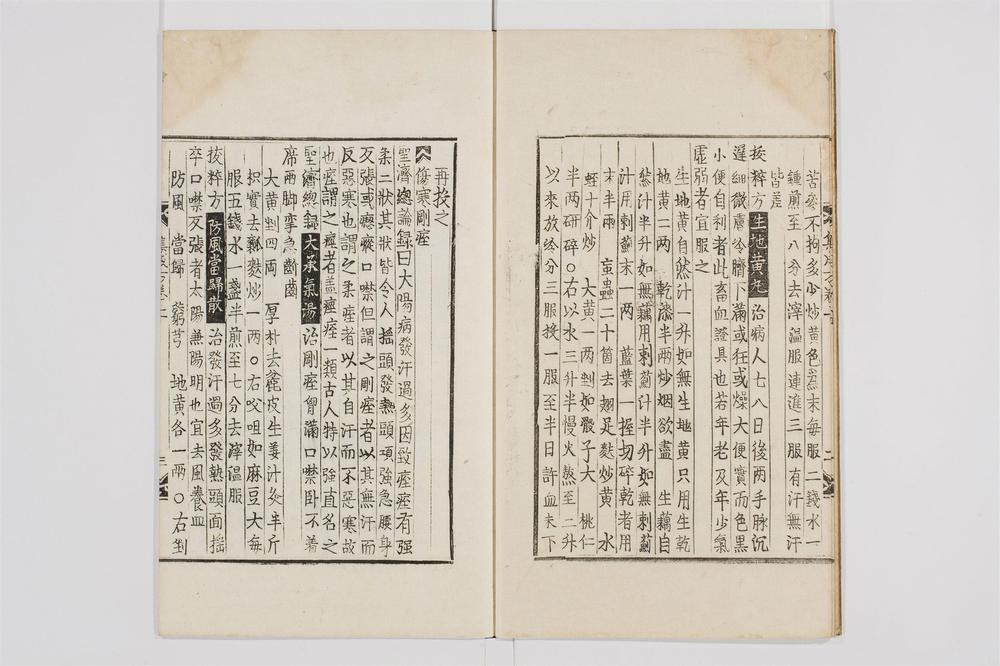 苦參不拘多少炒黃色爲末每服二錢水一
鍾煎至八分去滓溫服連進三服有汗無汗
皆差
挍粹方生地黃丸治病人七八日後兩手脉沉
遲細微膚冷臍下滿或狂或燥大便實而色黑
小便自利者此畜血證具也若年老及年少氣
虛弱者宜服之
生地黃自然汁一升如無生地黃只用生乾
地黃二兩 乾漆半兩炒烟欲盡 生藕自
然汁半升如無藕用刺薊汁半升如無刺薊
汁用刺薊末一兩 藍葉一握切碎乾者用
末半兩 䖟蟲二十箇去翅足麩炒黃 水
蛭十介炒 大黃一兩剉如骰子大 桃仁
半兩研碎○右以水三升半慢火熬至二升
以來放冷分三服投一服至半日許血未下
再投之
傷寒剛痓
聖濟總論錄曰大陽病發汗過多因致痓痓有强
柔二狀其狀皆令人搖頭發熱頭項強急腰身
反張或瘛瘲口噤但謂之剛痓者以其無汗而
反惡寒也謂之柔痓者以其自汗而不惡寒故
也痓謂之痙者盖痙痓一類古人特以強直名之
聖濟總錄大承氣湯治剛痓胷滿口噤卧不着
席兩脚攣急齗齒
大黃剉四兩 厚朴去麄皮生姜汁灸半斤
枳實去瓤麩炒一兩○右㕮咀如麻豆大每
服五錢水一盞半煎至七分去滓溫服
挍粹方防風當歸散治發汗過多發熱頭面揺
卒口噤反張者太陽兼陽明也宜去風養血
防風 當歸 芎 地黃各一兩○右剉